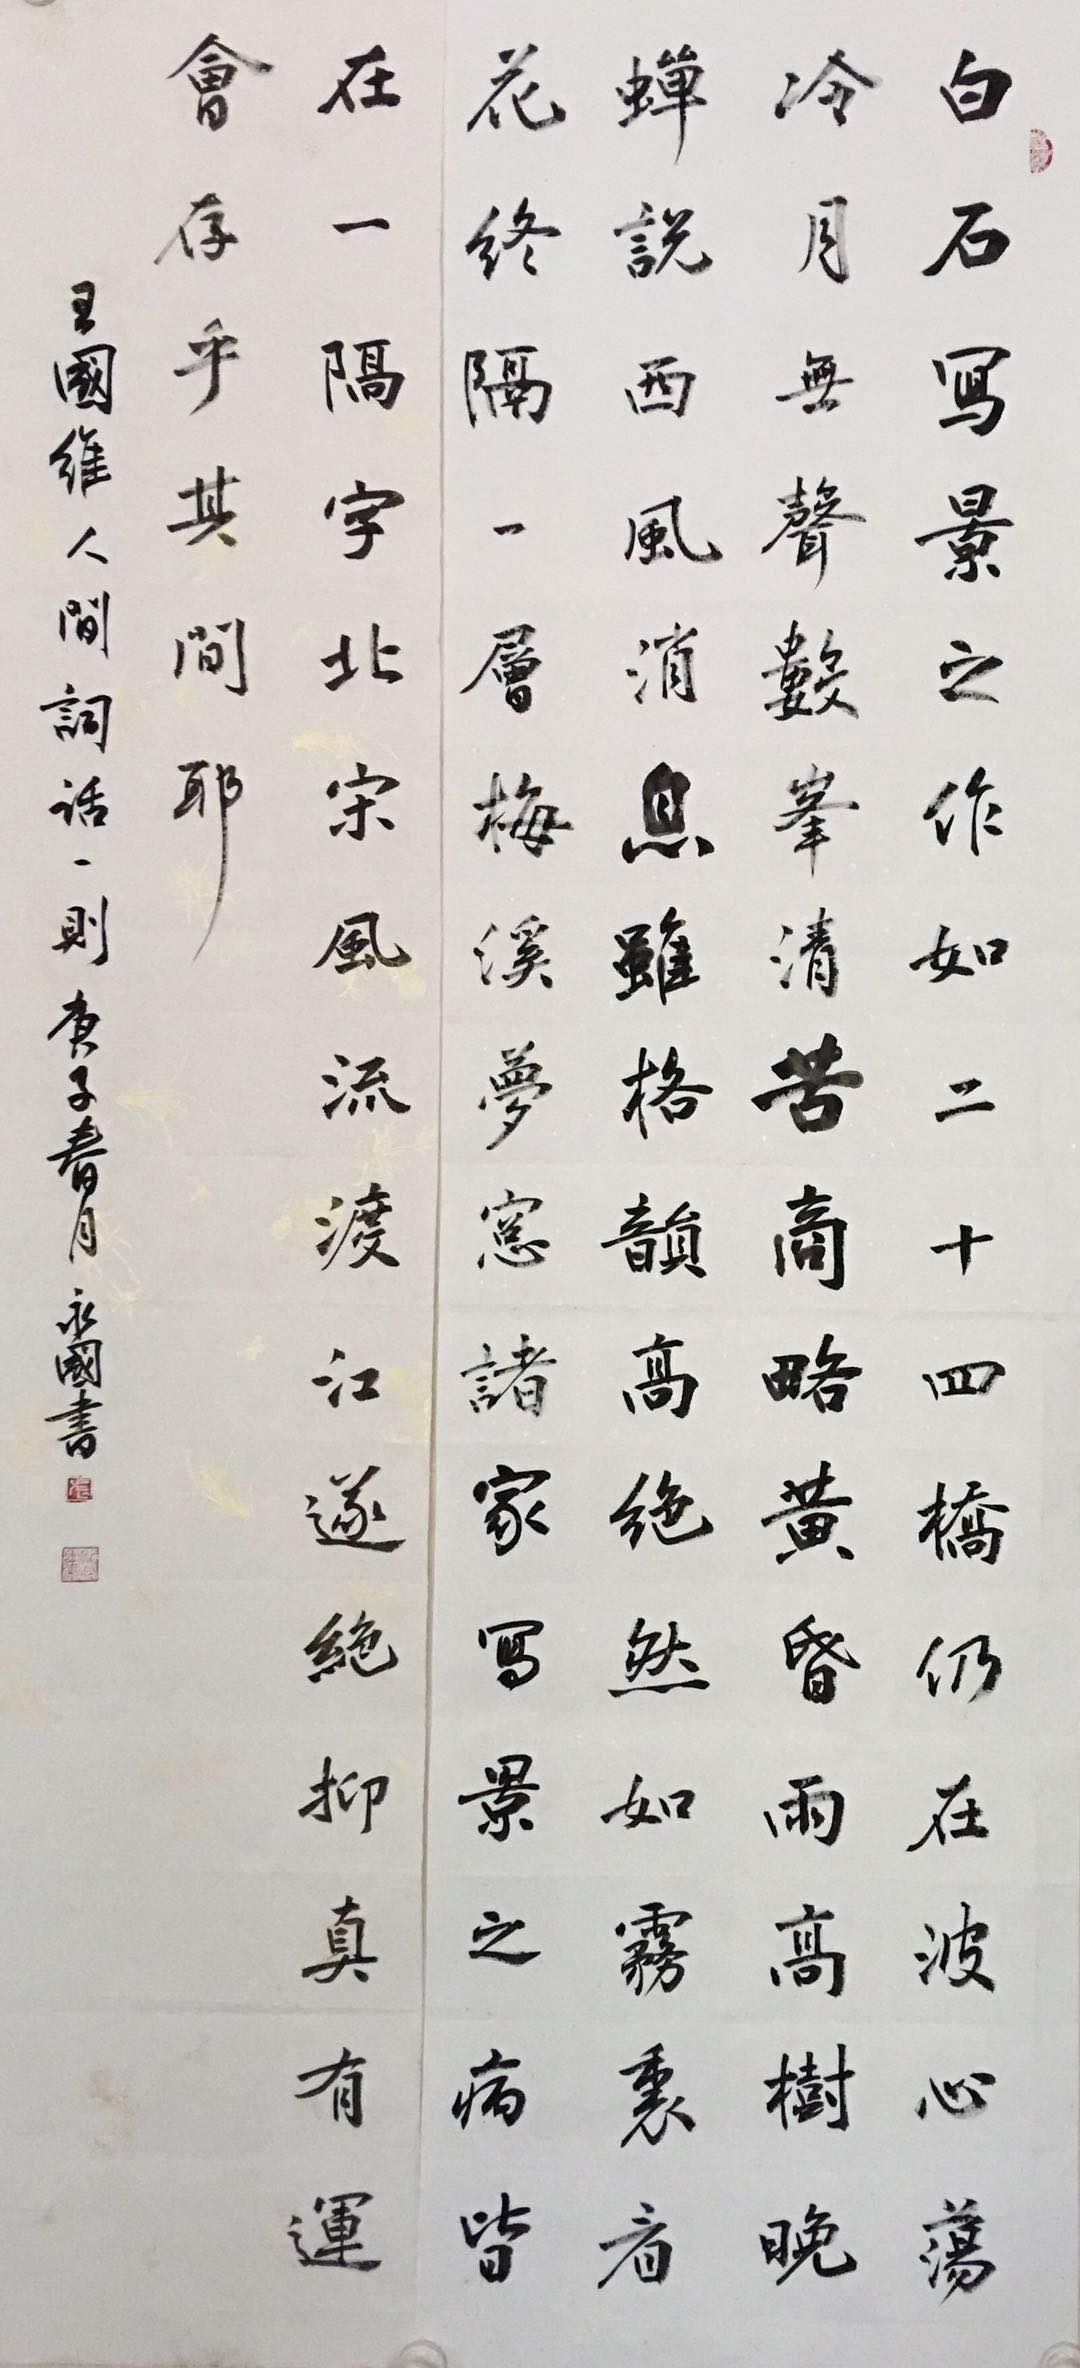 白石寫景之作如二十四橋仍在波心蕩
冷月無聲數峯清苦商略黃昏雨高樹晚
蟬說西風消息雖格韻高絶然如霧裏看
花終隔一層梅溪夢窓諸家寫景之病皆
在一隔字北宋風流渡江遂絶抑真有運
會存乎其間耶
王國維人間詞話一則庚子春月永國書